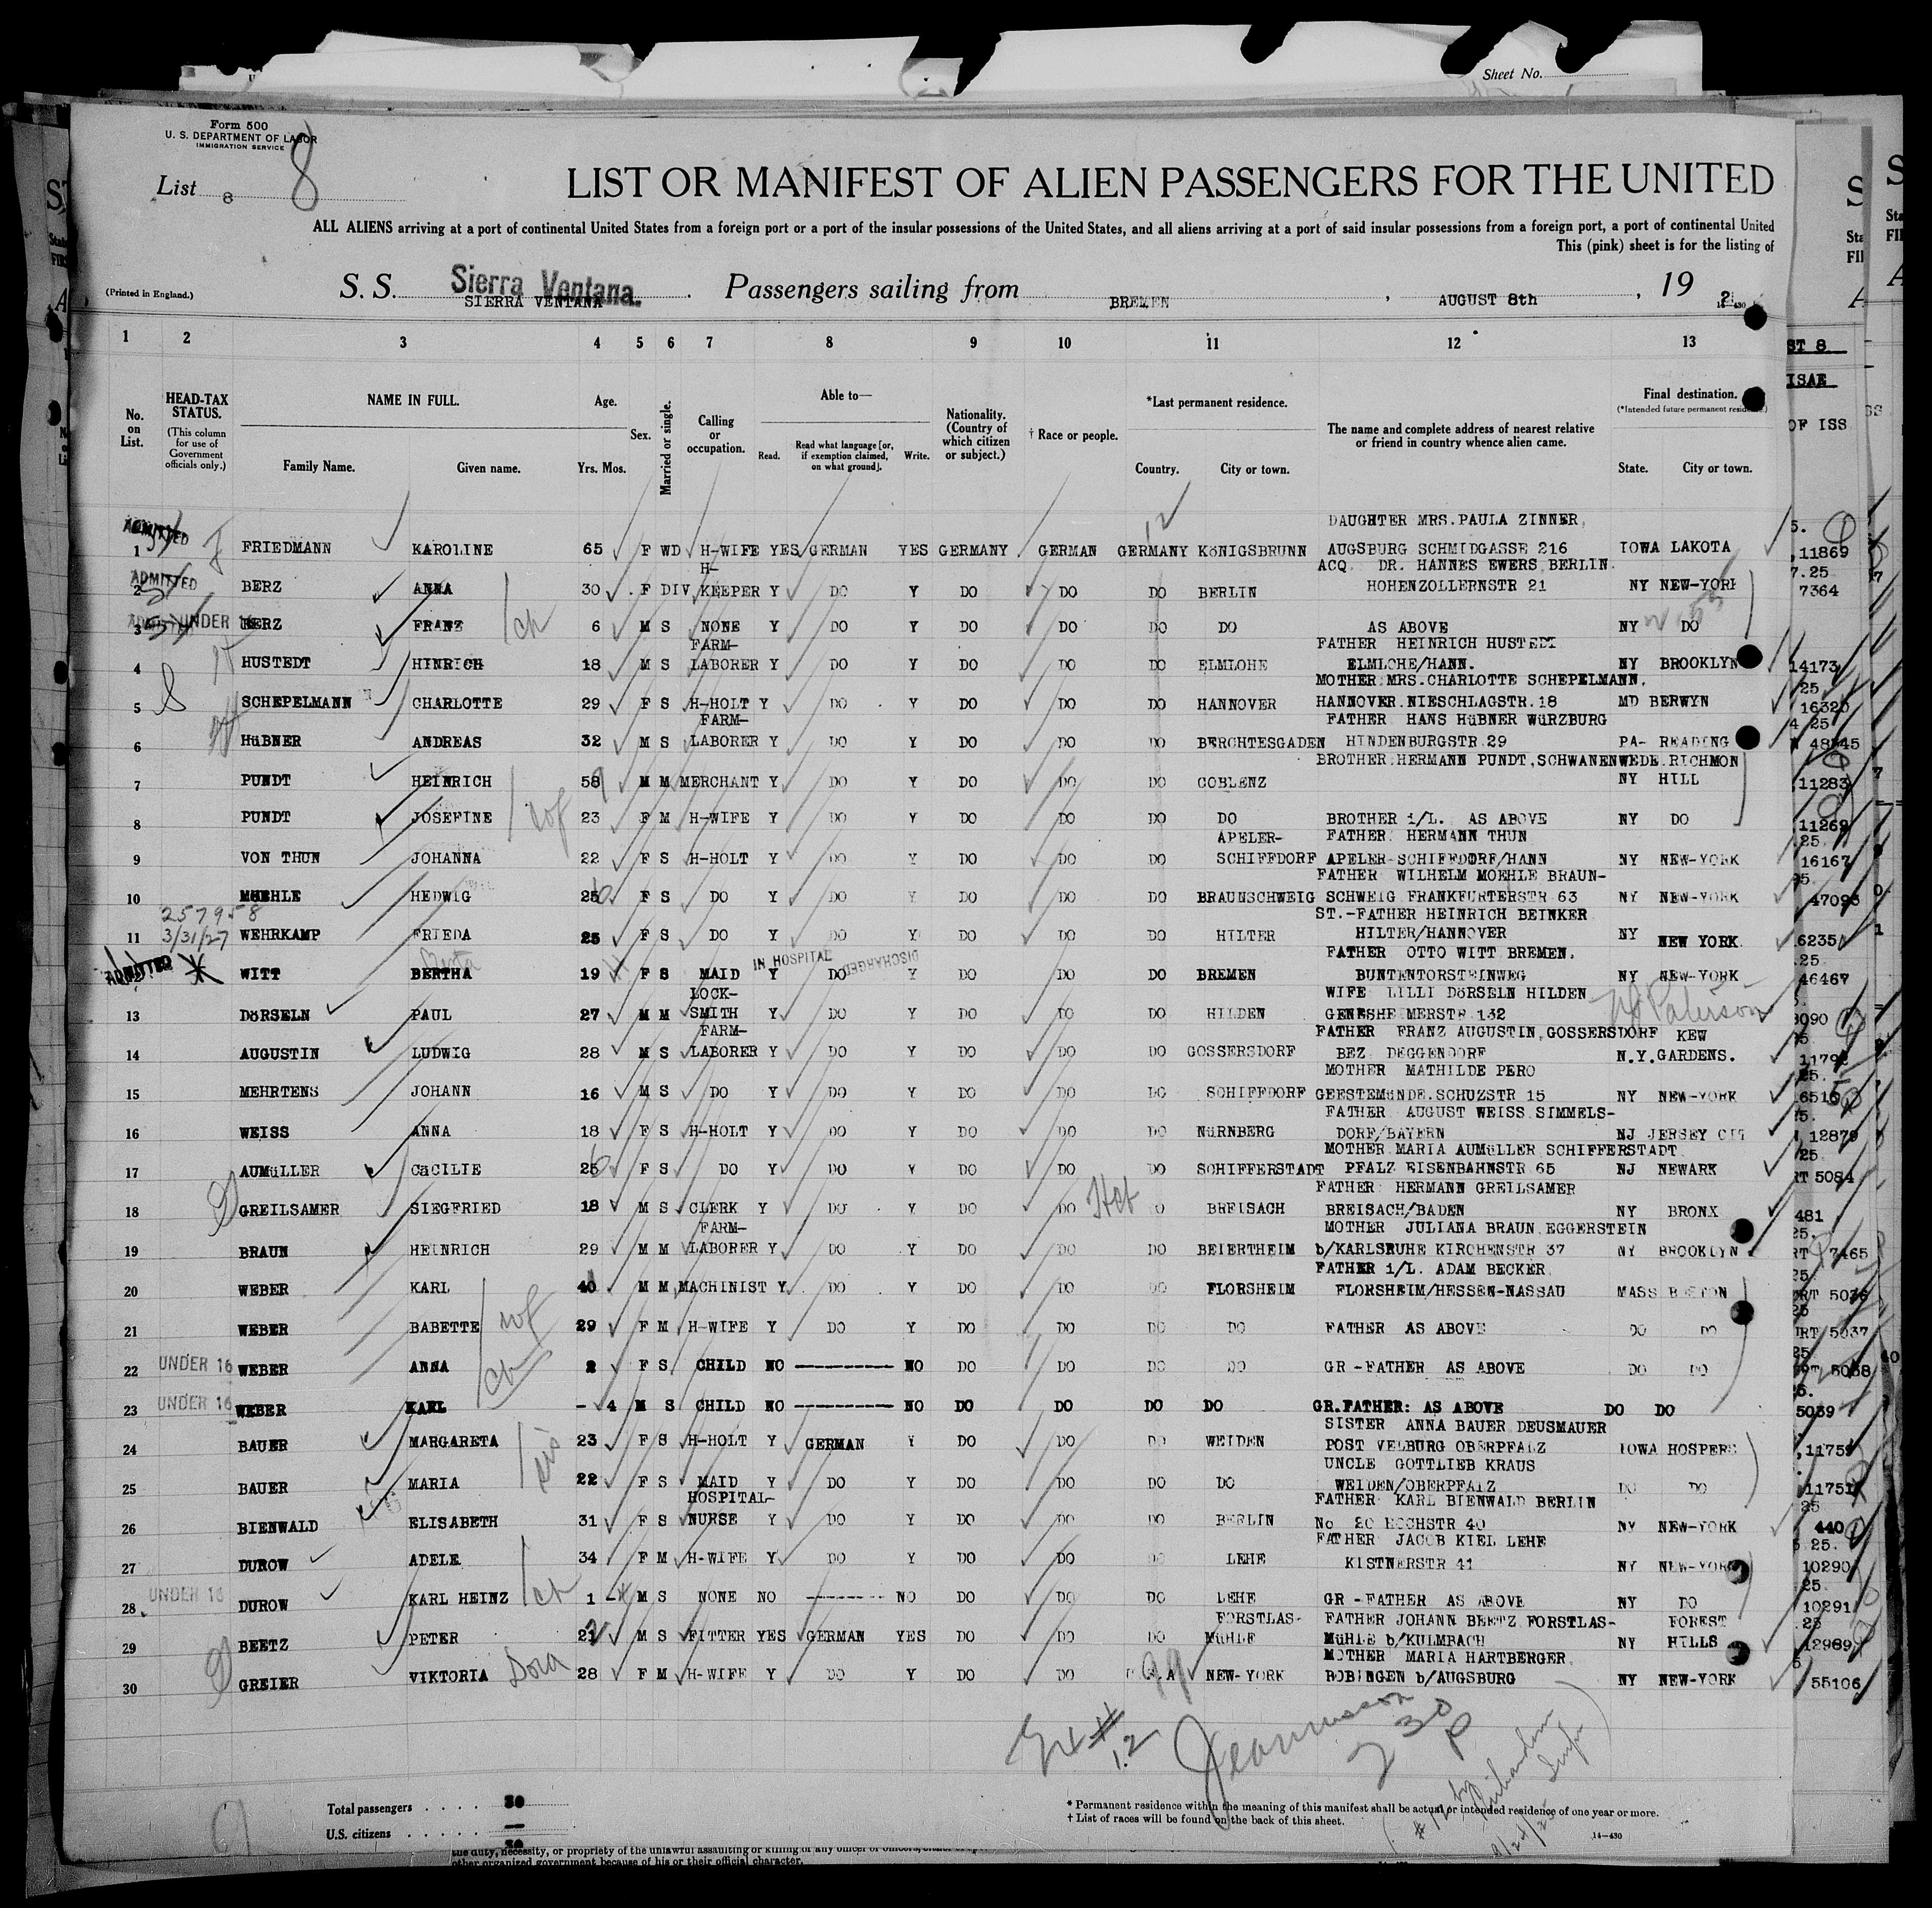 Sheet No.
Form 500
U. S. DEPARTMENT OF LABOR
IMMIGRATION SERVICE
8
List 8
LIST OR MANIFEST OF ALIEN PASSENGERS FOR THE UNITED
ALL ALIENS arriving at a port of continental United States from a foreign port or a port of the insular possessions of the United States, and all aliens arriving at a port of said insular possessions from a foreign port, a port of continental United
This (pink) sheet is for the listing of
(Printed in England.)
S. S. Sierra Ventana. SIERRA VENTANA Passengers sailing from BREMEN, AUGUST 8th, 19 2
14-430
1 2 3 4 5 6 7 8 9 10 11 12 13
No. on List.
HEAD-TAX STATUS. (This column for use of Government officials only.)
NAME IN FULL. Family Name. Given name.
Age. Yrs. Mos.
Sex.
Married or single.
Calling or occupation.
Able to— Read. Read what language [or, if exemption claimed, on what ground]. Write.
Nationality. (Country of which citizen or subject.)
† Race or people.
*Last permanent residence. Country. City or town.
The name and complete address of nearest relative or friend in country whence alien came.
Final destination. (*Intended future permanent residence.) State. City or town.
DAUGHTER MRS.PAULA ZINNER,
ADMITTED 1 FRIEDMANN KAROLINE 65 F WD H-WIFE YES GERMAN YES GERMANY GERMAN GERMANY KöNIGSBRUNN AUGSBURG SCHMIDGASSE 216 IOWA LAKOTA 11869
H- ACQ. DR. HANNES EWERS BERLIN
ADMITTED 2 BERZ ANNA 30 F DIV KEEPER Y DO Y DO DO DO BERLIN HOHENZOLLERNSTR 21 NY NEW-YORK 7364
ADMITTED 3 UNDER 16 BERZ FRANZ 6 M S NONE Y DO Y DO DO DO DO AS ABOVE NY DO
FARM- FATHER HEINRICH HUSTEDT
4 HUSTEDT HINRICH 18 M S LABORER Y DO Y DO DO DO ELMLOHE ELMLOHE/HANN. NY BROOKLYN 14173
MOTHER MRS.CHARLOTTE SCHEPELMANN,
5 SCHEPELMANN CHARLOTTE 29 F S H-HOLT Y DO Y DO DO DO HANNOVER HANNOVER.NIESCHLAGSTR.18 MD BERWYN 16320
FARM- FATHER HANS HüBNER WüRZBURG
6 HüBNER ANDREAS 32 M S LABORER Y DO Y DO DO DO BERCHTESGADEN HINDENBURGSTR 29 PA- READING 48545
BROTHER HERMANN PUNDT,SCHWANENWEDE.RICHMON
7 PUNDT HEINRICH 58 M M MERCHANT Y DO Y DO DO DO COBLENZ NY HILL 11283
8 PUNDT JOSEFINE wf 23 F M H-WIFE Y DO Y DO DO DO DO BROTHER i/L. AS ABOVE NY DO 11269
APELER- FATHER HERMANN THUN
9 VON THUN JOHANNA 22 F S H-HOLT Y DO Y DO DO DO SCHIFFDORF APELER-SCHIFFDORF/HANN NY NEW-YORK 16167
FATHER WILHELM MOEHLE BRAUN-
10 MOEHLE HEDWIG 25 F S DO Y DO Y DO DO DO BRAUNSCHWEIG SCHWEIG FRANKFURTERSTR 63 NY NEW-YORK 47095
257958 ST.-FATHER HEINRICH BEINKER
11 3/31/27 WEHRKAMP FRIEDA 25 F S DO Y DO Y DO DO DO HILTER HILTER/HANNOVER NY NEW YORK 6235
Berta IN HOSPITAL DISCHARGED FATHER OTTO WITT BREMEN.
ADMITTED WITT BERTHA 19 F S MAID Y DO Y DO DO DO BREMEN BUNTENTORSTEINWEG NY NEW-YORK 46467
LOCK- WIFE LILLI DöRSELN HILDEN
13 DöRSELN PAUL 27 M M SMITH Y DO Y DO DO DO HILDEN GENESHEIMERSTR 132 NJ Paterson 3090
FARM- FATHER FRANZ AUGUSTIN,GOSSERSDORF KEW
14 AUGUSTIN LUDWIG 28 M S LABORER Y DO Y DO DO DO GOSSERSDORF BEZ DEGGENDORF N.Y.GARDENS. 11792
MOTHER MATHILDE PERO
15 MEHRTENS JOHANN 16 M S DO Y DO Y DO DO DO SCHIFFDORF GEESTEMüNDE.SCHUZSTR 15 NY NEW-YORK 6516
FATHER AUGUST WEISS SIMMELS-
16 WEISS ANNA 18 F S H-HOLT Y DO Y DO DO DO NüRNBERG DORF/BAYERN NJ JERSEY CIT 12879
MOTHER MARIA AUMüLLER SCHIFFERSTADT
17 AUMüLLER CäCILIE 25 F S DO Y DO Y DO DO DO SCHIFFERSTADT PFALZ EISENBAHNSTR 65 NJ NEWARK 5084
FATHER HERMANN GREILSAMER
18 GREILSAMER SIEGFRIED 18 M S CLERK Y DO Y DO DO Heb DO BREISACH BREISACH/BADEN NY BRONX 481
FARM- MOTHER JULIANA BRAUN EGGERSTEIN
19 BRAUN HEINRICH 29 M M LABORER Y DO Y DO DO DO BEIERTHEIM b/KARLSRUHE KIRCHENSTR 37 NY BROOKLYN 7465
FATHER i/L. ADAM BECKER
20 WEBER KARL 40 M M MACHINIST Y DO Y DO DO DO FLORSHEIM FLORSHEIM/HESSEN-NASSAU MASS BOSTON 5036
21 WEBER BABETTE wf 29 F M H-WIFE Y DO Y DO DO DO DO FATHER AS ABOVE DO DO 5037
22 UNDER 16 WEBER ANNA ch 2 F S CHILD NO ---------- NO DO DO DO DO GR-FATHER AS ABOVE DO DO 5038
23 UNDER 16 WEBER KARL - 4 M S CHILD NO ---------- NO DO DO DO DO GR.FATHER: AS ABOVE DO DO 5039
SISTER ANNA BAUER DEUSMAUER
24 BAUER MARGARETA sis 23 F S H-HOLT Y GERMAN Y DO DO DO WEIDEN POST VELBURG OBERPFALZ IOWA HOSPERS 11759
UNCLE GOTTLIEB KRAUS
25 BAUER MARIA 22 F S MAID Y DO Y DO DO DO DO WEIDEN/OBERPFALZ DO DO 11751
HOSPITAL- FATHER KARL BIENWALD BERLIN
26 BIENWALD ELISABETH 31 F S NURSE Y DO Y DO DO DO BERLIN No 20 HOCHSTR 40 NY NEW-YORK 440
FATHER JACOB KIEL LEHE
27 DUROW ADELE 34 F M H-WIFE Y DO Y DO DO DO LEHE KISTNERSTR 41 NY NEW-YORK 10290
28 UNDER 16 DUROW KARL HEINZ ch 1 M S NONE NO -------- NO DO DO DO LEHE GR-FATHER AS ABOVE NY DO 10291
FORSTLAS- FATHER JOHANN BEETZ FORSTLAS- FOREST
29 BEETZ PETER 21 M S FITTER YES GERMAN YES DO DO DO MüHLE MüHLE b/KULMBACH NY HILLS 12989
MOTHER MARIA HARTBERGER
30 GREIER VIKTORIA Dora 28 F M H-WIFE Y DO Y DO DO NEW-YORK BOBINGEN b/AUGSBURG NY NEW-YORK 55106
Total passengers . . . . 30
U.S. citizens . . . . . —
30
* Permanent residence within the meaning of this manifest shall be actual or intended residence of one year or more.
† List of races will be found on the back of this sheet.
14-430
the duty, necessity, or propriety of the unlawful assaulting or killing of any officer or officers,
other organized government because of his or their official character.